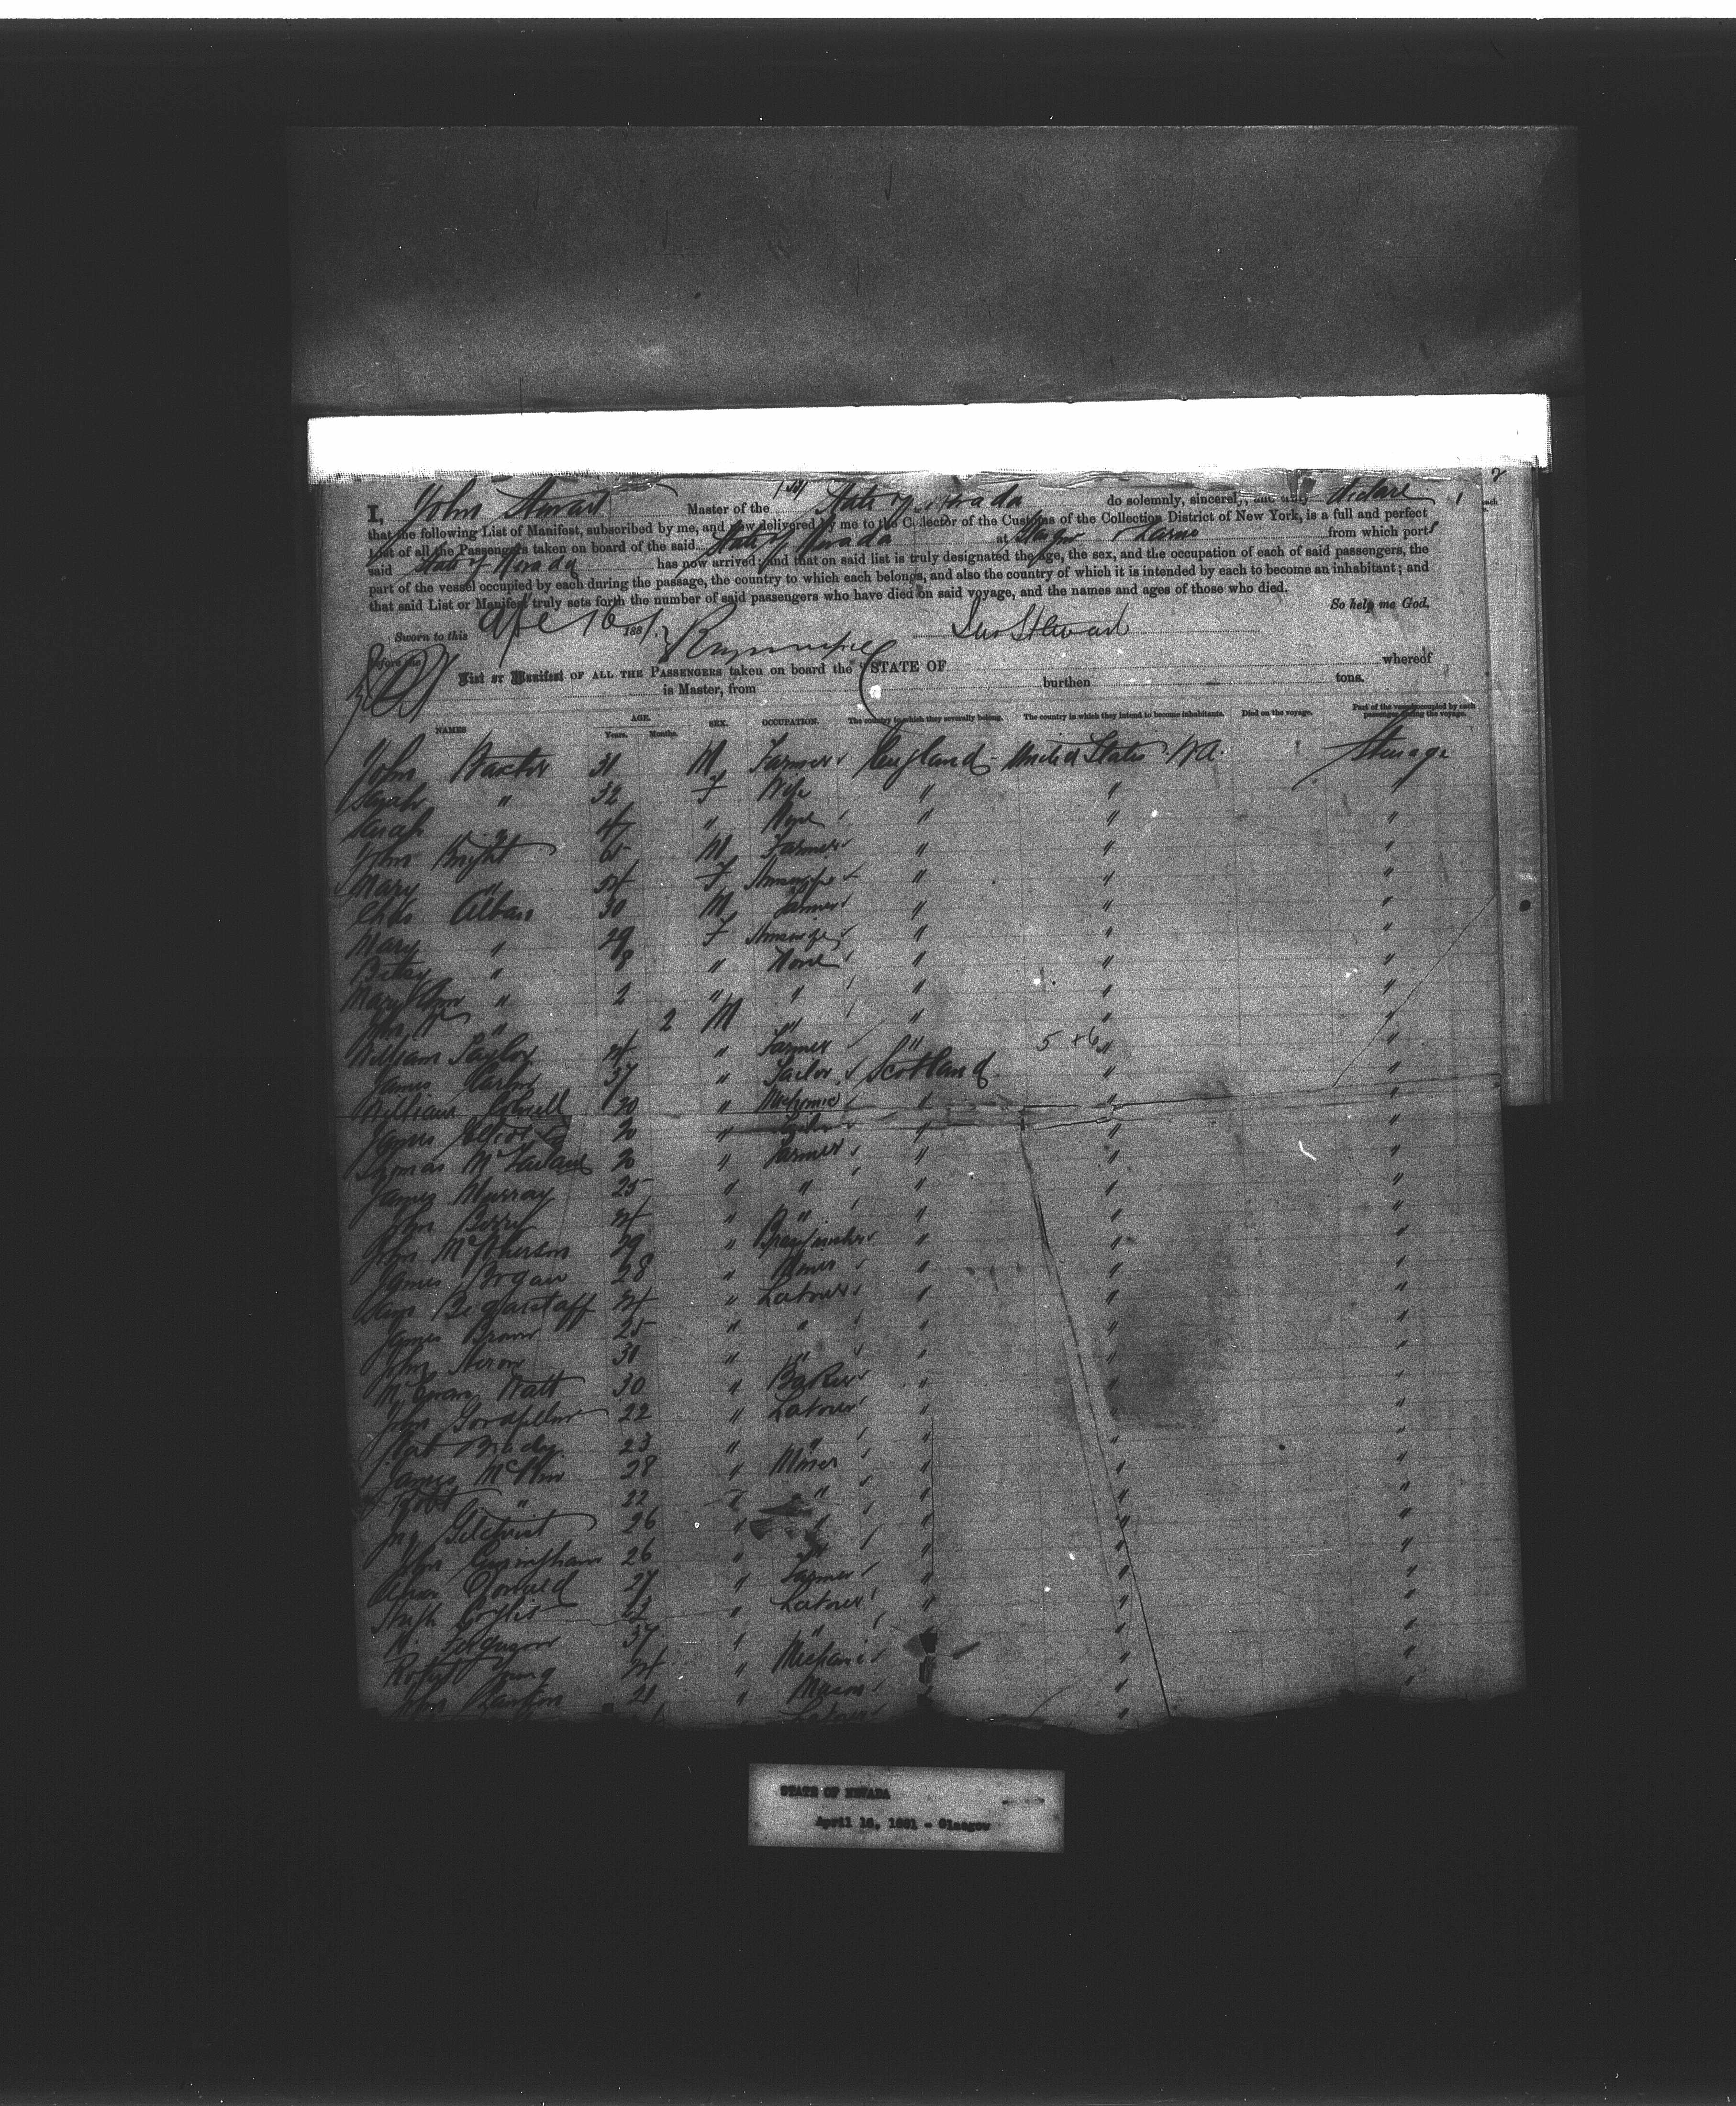 I, John Stewart Master of the State of Nevada do solemnly, sincerely, and truly declare
that the following List of Manifest, subscribed by me, and now delivered by me to the Collector of the Customs of the Collection District of New York, is a full and perfect
List of all the Passengers taken on board of the said State of Nevada at Glasgow & Larne from which port
said State of Nevada has now arrived; and that on said list is truly designated the age, the sex, and the occupation of each of said passengers, the
part of the vessel occupied by each during the passage, the country to which each belongs, and also the country of which it is intended by each to become an inhabitant; and
that said List or Manifest truly sets forth the number of said passengers who have died on said voyage, and the names and ages of those who died.
So help me God.
Sworn to this Apl 16 1881 Jno Stewart
before me
List or Manifest OF ALL THE PASSENGERS taken on board the STATE OF whereof
is Master, from burthen tons.
NAMES AGE. Years. Months. SEX. OCCUPATION. The country to which they severally belong. The country in which they intend to become inhabitants. Died on the voyage. Part of the vessel occupied by each passenger during the voyage.
John Baxter 31 M Farmer England United States Steerage
Sarah " 32 F Wife " " "
Sarah " None " " "
John Bright 65 M Farmer " " "
Mary " 54 F " " "
Chas Alban 30 M Farmer " " "
Mary " 29 F " " "
Betsy " 8 " None " " "
Mary Ann " 2 " " " " "
" 2 M " " " "
William Taylor 24 " Farmer " 5 + 6 " "
James 37 " Tailor Scotland " "
William 20 " Mechanic " " "
James 20 " " " "
Thomas McFarland 20 " Farmer " " "
James Murray 25 " " " " "
John Berry 24 " " " " "
John McPherson 29 " " " "
James Brogan 28 " Miner " " "
Saml Beggarstaff 24 " Labourer " " "
James Brown 25 " " " " "
John Heron 31 " " " " "
McEwan Watt 30 " Baker " " "
John Goodfellow 22 " Labourer " " "
Robt Brady 23 " " " " "
James 28 " Miner " " "
Robt " 22 " " " " "
Jno Gilchrist 26 " " " " "
John Cunningham 26 " " " " "
Donald 27 " Farmer " " "
Hugh 23 " Labourer " " "
Ferguson 37 " " " " "
Robert Young 24 " Mechanic " "
John Rankin 21 " Mason " "
Labourer
STATE OF NEVADA
April 16, 1881 - Glasgow